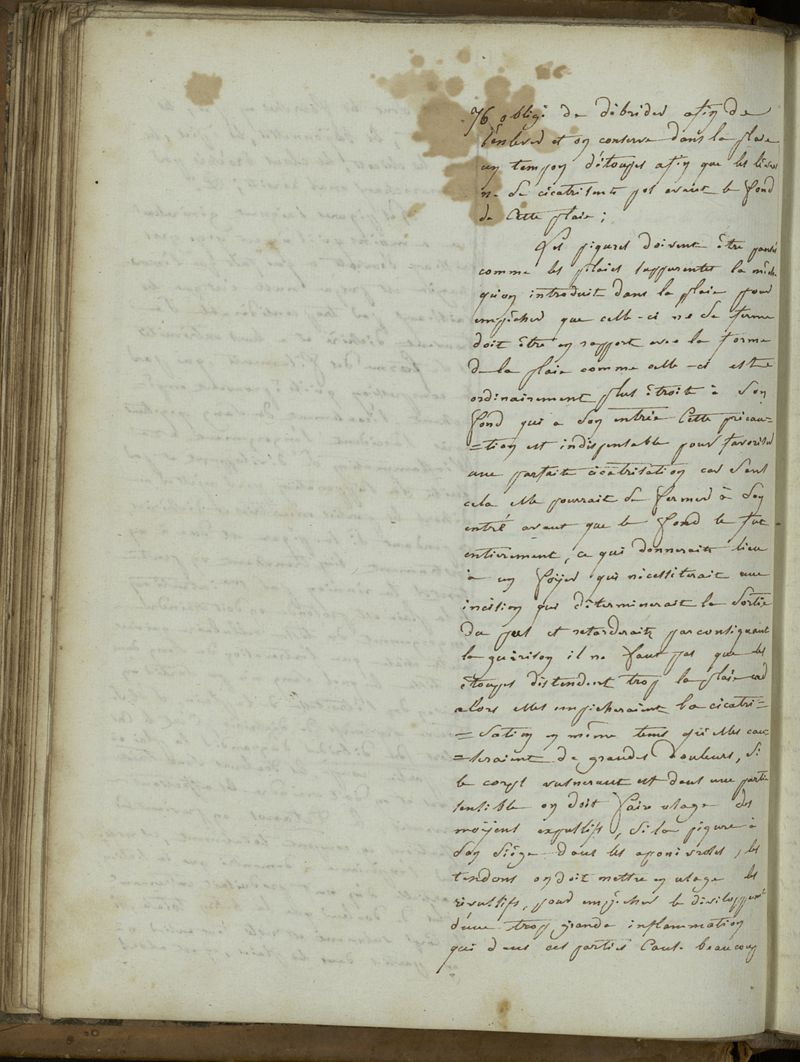 76 obligé de débrider afin de
l'enlever et on conserve dans la plaie
un tempon d'étoupes afin que les lèvres
ne se cicatrisent pas avant le fond
de cette plaie ;
Les piqures doivent être pansé
comme les plaies suppurentes la mêche
qu'on introduit dans la plaie pour
empêcher que celle-ci ne se ferme
doit être en rapport avec la forme
de la plaie comme celle-ci est
ordinairement plus étroite à son
fond qui a son entrée Cette précau=
=tion est indispensable pour favoriser
une parfaite cicatrisation car sens
cela elle pourrait se fermer à son
entré avant que le fond le fut
entierement, ce qui donnerait lieu
à un foyer qui nécessiterait une
incision qui déterminerait la sortie
du pus et retarderait parconsiquent
la guérison il ne faut pas que les
étoupes distendent trop la plaie car
alors elles empicheraient la cicatri=
=sation en même tems qu'elles cau
=seraient de grandes douleurs, Si
le corps vulnerant est dans une partie
sensible on doit faire usage des
moyens expulsifs, Si la piqure à
son siège dans les aponivroses, les
tendons on doit mettre en usage les
révulsifs, pour empêcher le déviloppemt
d'une trop grande inflammation
qui dans ces parties Cause beaucoup